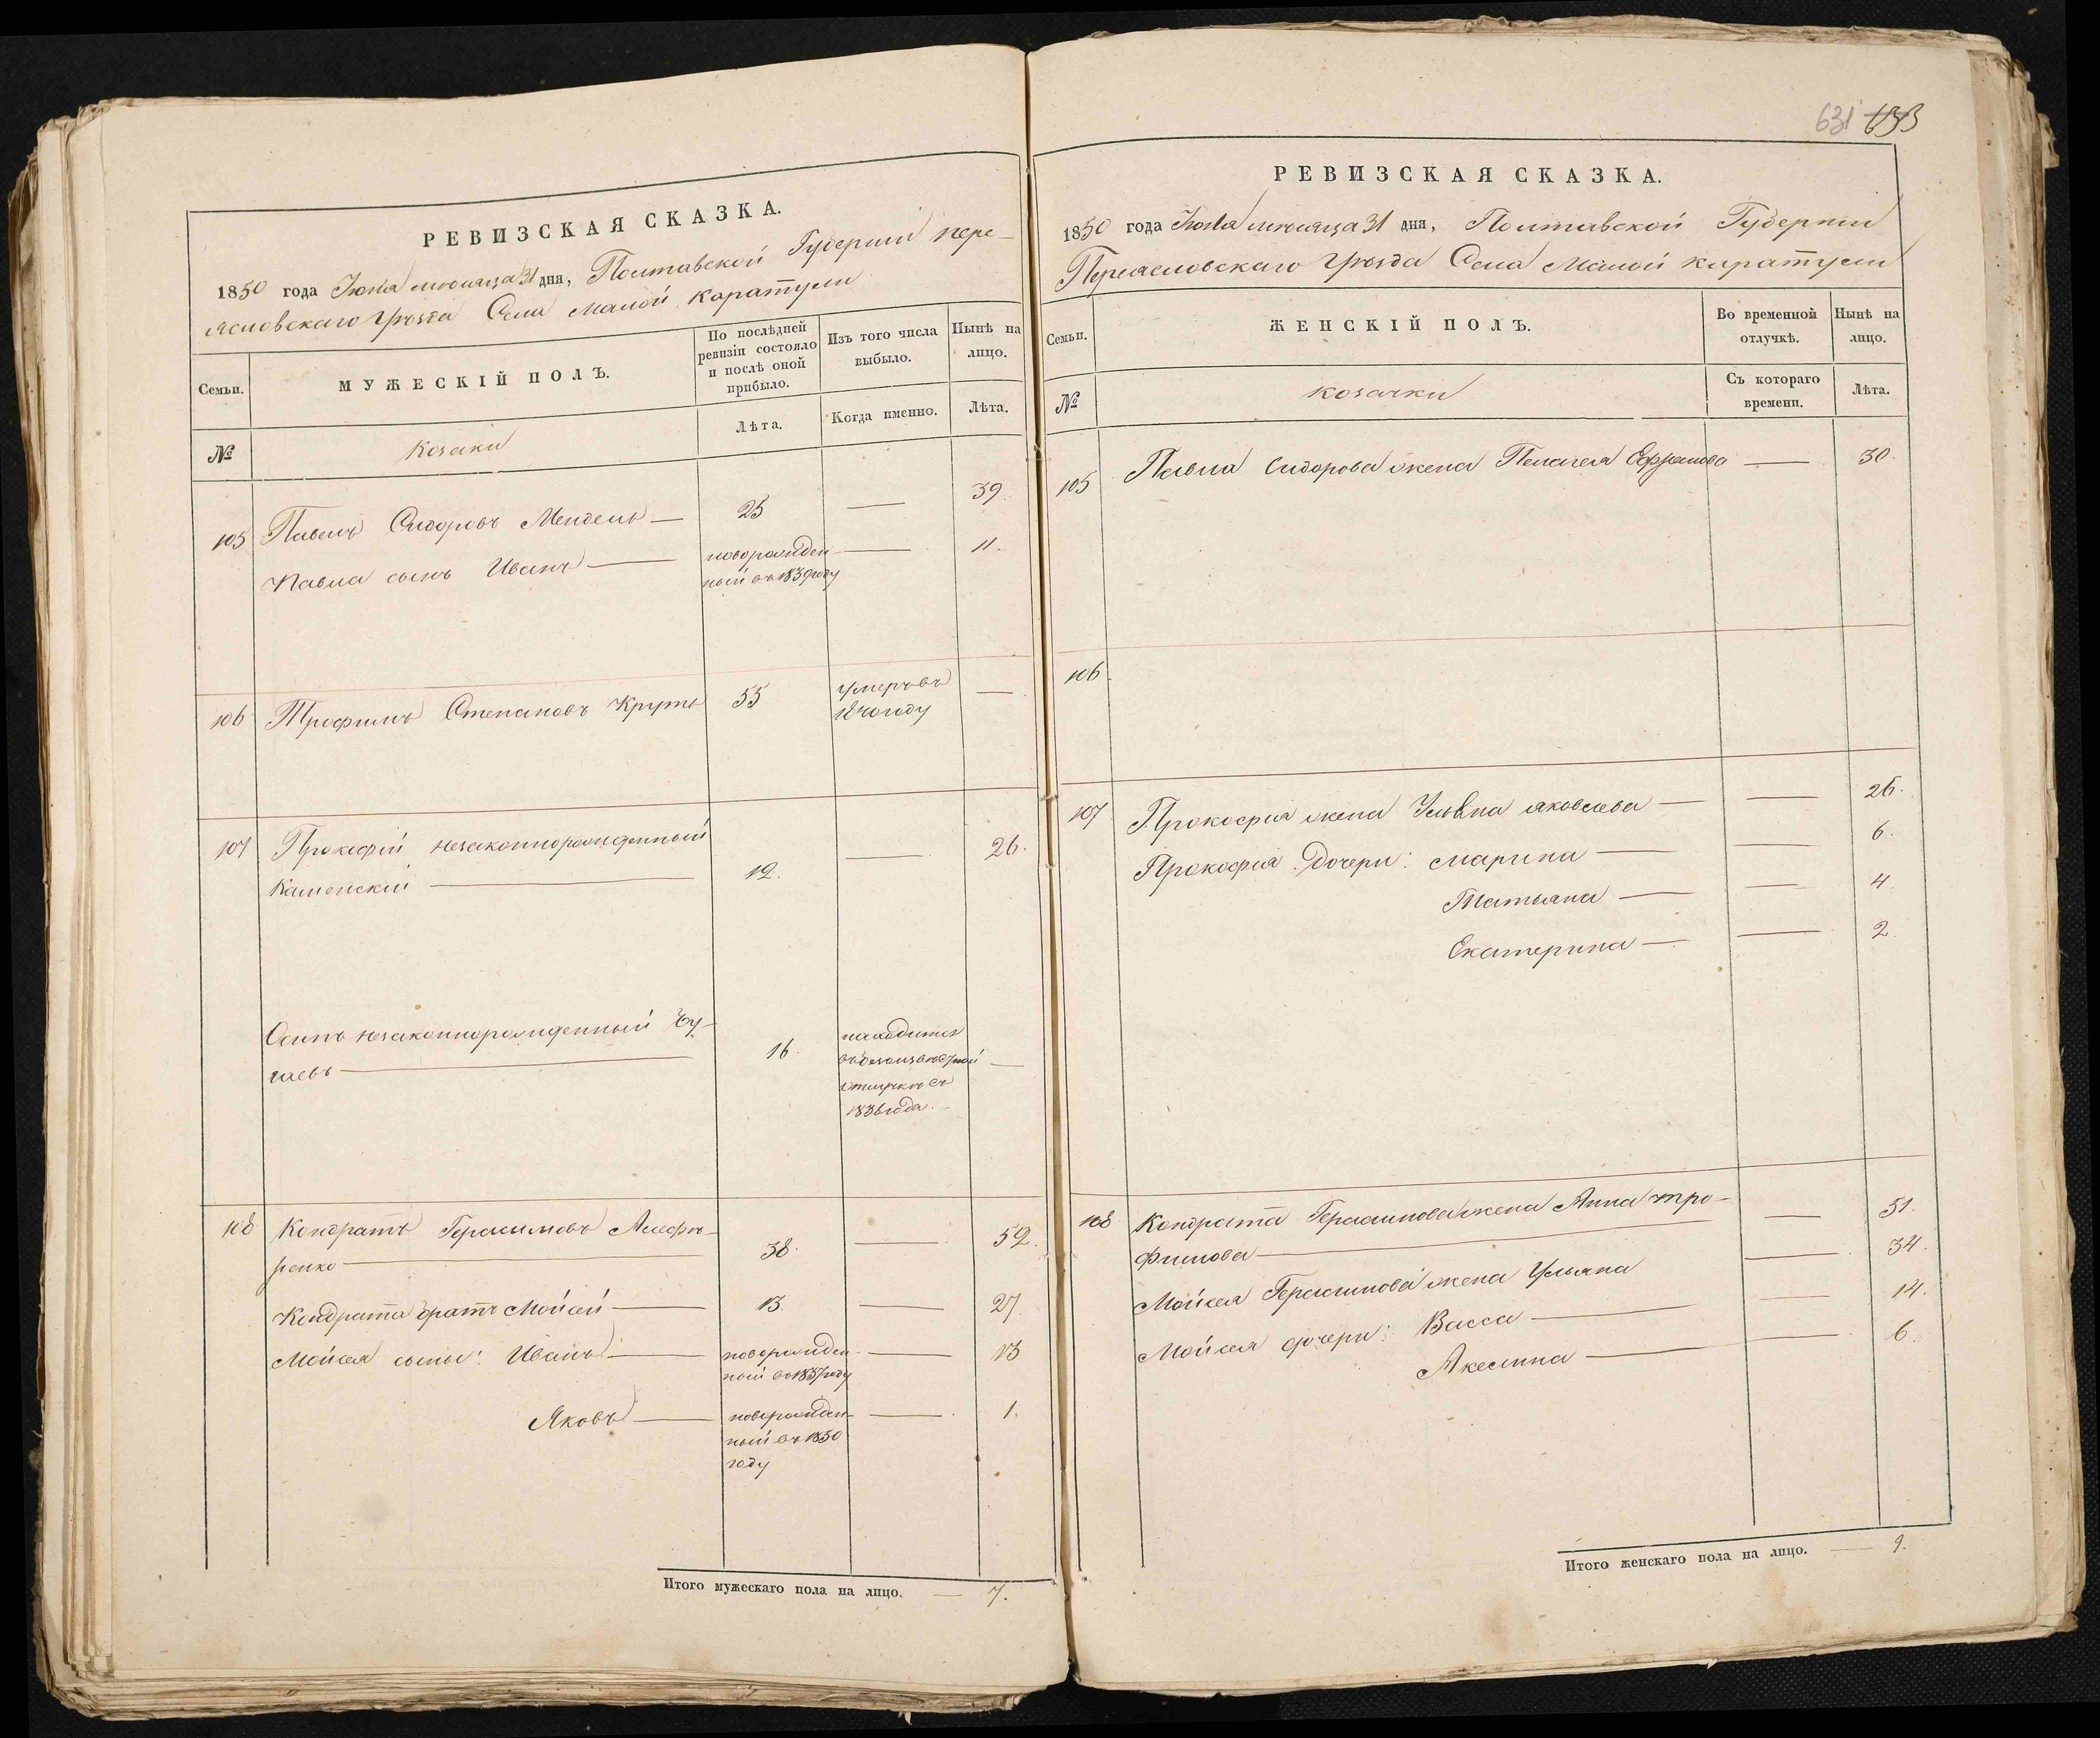 РЕВИЗСКАЯ СКАЗКА.
1850 года Июля мѣсяца 31 дня, Полтавской Губерніи Пере-
яславскаго Уѣзда Села Малой Каратули
Семьи.
МУЖЕСКІЙ ПОЛЪ.
По послѣдней
ревизіи состояло
и послѣ оной
прибыло.
Изъ того числа
выбыло.
Нынѣ на
лицо.
№
Козаки
Лѣта.
Когда именно.
Лѣта.
105 Павелъ Сидоровъ Мендель — 25 — 39.
Павла сынъ Иванъ — новорожден- — 11.
ный въ 1839 году
106 Трофимъ Степановъ Крутъ 55 умеръ въ —
1840 году
107 Прокофій незаконнорожденный
Каменскій — 12. — 26.
Осипъ незаконнорожденный Бу-
гаевъ — 16. находится
въ безъизвѣстной —
отлучкѣ съ
1836 года. —
108 Кондратъ Герасимовъ
ренко — 38. — 52.
Кондрата братъ Мойсей — 13. — 27.
Мойсея сыны: Иванъ — новорожден- — 13
ный въ 1837 году
Яковъ — новорожден- — 1.
ный въ 1850
году
Итого мужескаго пола на лицо. — 7.
631 633
РЕВИЗСКАЯ СКАЗКА.
1850 года Июля мѣсяца 31 дня, Полтавской Губерніи
Переясловскаго Уѣзда Села Малой Каратули
Семьи.
ЖЕНСКІЙ ПОЛЪ.
Во временной
отлучкѣ.
Нынѣ на
лицо.
№
козачки
Съ котораго
времени.
Лѣта.
105 Павла Сидорова жена Пелагея — 30.
106.
107 Прокофія жена Ульяна Яковлева — — 26.
Прокофія дочери: Марина — — 6.
Татьяна — — 4.
Екатерина — — 2.
108 Кондрата Герасимова жена Анна Тро-
фимова — — 51.
Мойсея Герасимова жена Ульяна — 34.
Мойсея дочери: Васса — — 14.
Акелина — — 6.
Итого женскаго пола на лицо. — 9.